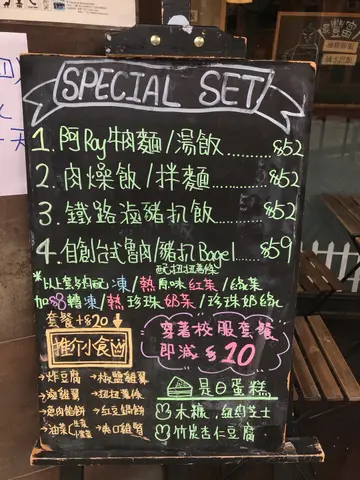 SPECIAL SET
1. 阿Ray牛肉麵/湯飯........$52
2. 肉燥飯/拌麵........$52
3. 鐵路滷豬扒飯........$52
4. 自創台式魯肉/豬扒Bagel....$59
配扭扭薯條
*以上套餐配凍/熱原味紅茶/綠茶
加$8轉凍/熱珍珠奶茶/珍珠奶綠
套餐+$20
推介小食
→炸豆腐 →椒鹽雞翼
→滷雞翼 →扭扭薯條
→魚肉餡餅 →紅豆餡餅
→油菜
穿著校服套餐
即減$10
是日蛋糕
木糠
竹炭杏仁豆腐